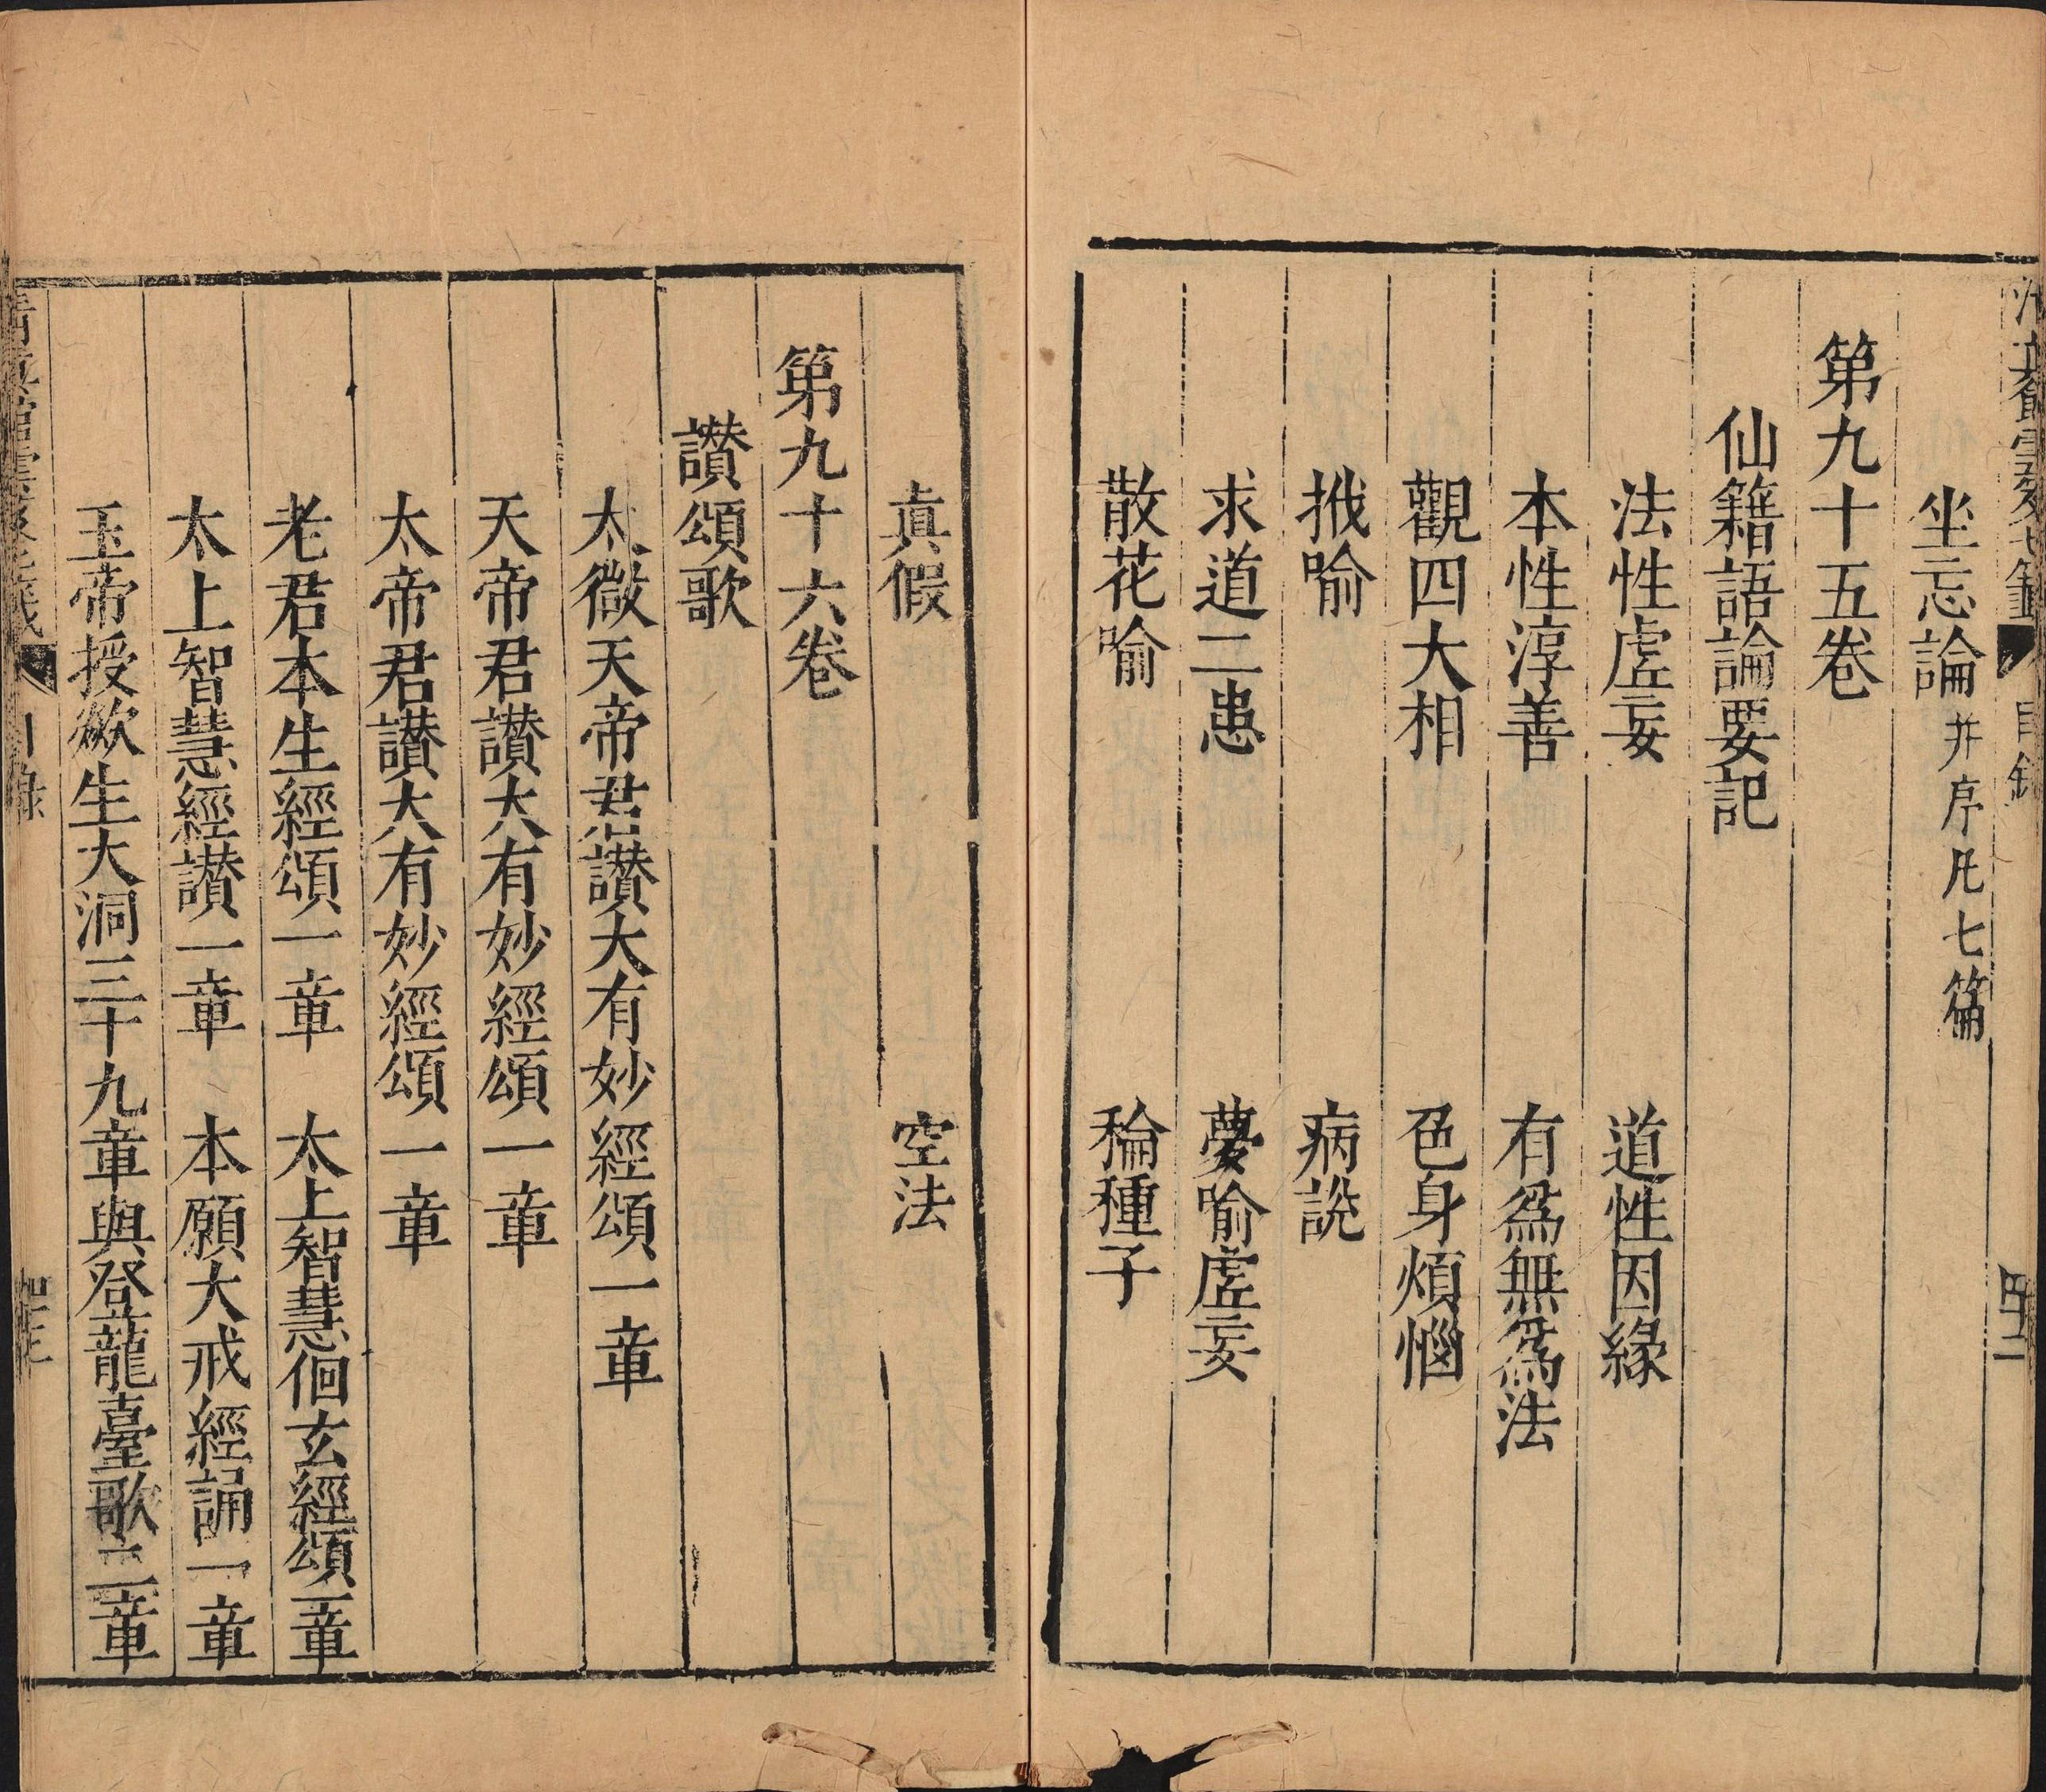 坐忘論并序凡七篇
第九十五卷
仙籍語論要記
法性虛妄　道性因緣
本性淳善　有爲無爲法
觀四大相　色身煩惱
栰喻　病說
求道二患　夢喻虛妄
散花喻　稐種子
眞假　空法
第九十六卷
讃頌歌
太微天帝君讃大有妙經頌一章
天帝君讃大有妙經頌一章
太帝君讃大有妙經頌一章
老君本生經頌一章　太上智慧佪玄經頌一章
太上智慧經讃一章　本願大戒經誦一章
玉帝授欻生大洞三十九章與登龍臺歌二章
目錄